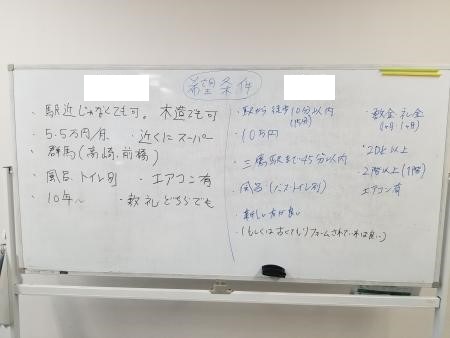 希望条件
・駅近じゃなくても可。木造でも可
・5.5万円/月 ・近くにスーパー
・群馬(高崎,前橋)
・風呂、トイレ別 ・エアコン有
・10年〜 ・敷礼どちらでも
・駅から徒歩10分以内
・10万円
・三鷹駅まで45分以内
・風呂(バス・トイレ別)
・新しい方が良い
(もしくは古くてもリフォームされていれば良い)
敷金 礼金
(1ヶ月・1ヶ月)
・20㎡以上
2階以上(1階)
エアコン有